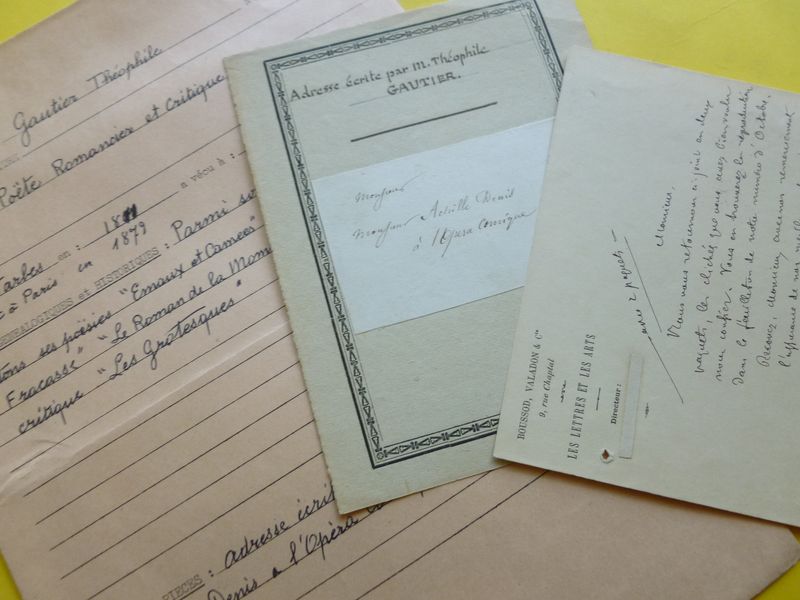 Gautier Théophile
Poëte Romancier et Critique
a vécu à :
Tarbes en : 1811
à Paris en 1879
GÉNÉALOGIQUES et HISTORIQUES : Parmi
ses poësies "Emaux et Camées"
Fracasse" "Le Roman de la Mom
critique "Les Grotesques"
PIECES : adresse
Denis a l'Opéra
Adresse écrite par M. Théophile
GAUTIER.
Monsieur
Monsieur Achille Denis
à l'Opéra Comique
BOUSSOD, VALADON & Cie
9, rue Chaptal
LES LETTRES ET LES ARTS
Directeur :
autres 2 paquets
Monsieur,
Nous vous retournons ci-joint en deux
paquets, les clichés que vous avez bien voulu
nous confier. Vous en trouverez la reproduction
dans le feuilleton de notre numéro d'Octobre.
Recevez, Monsieur, avec nos remerciements
l'assurance de nos